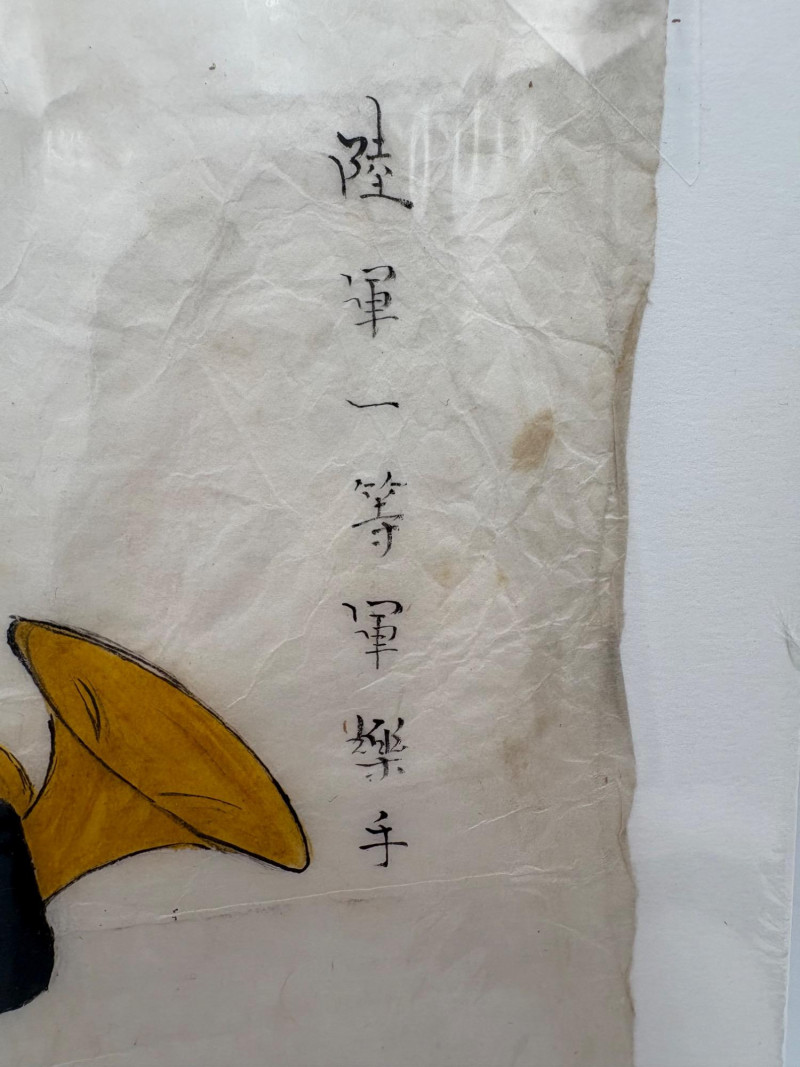 陸軍一等軍樂手